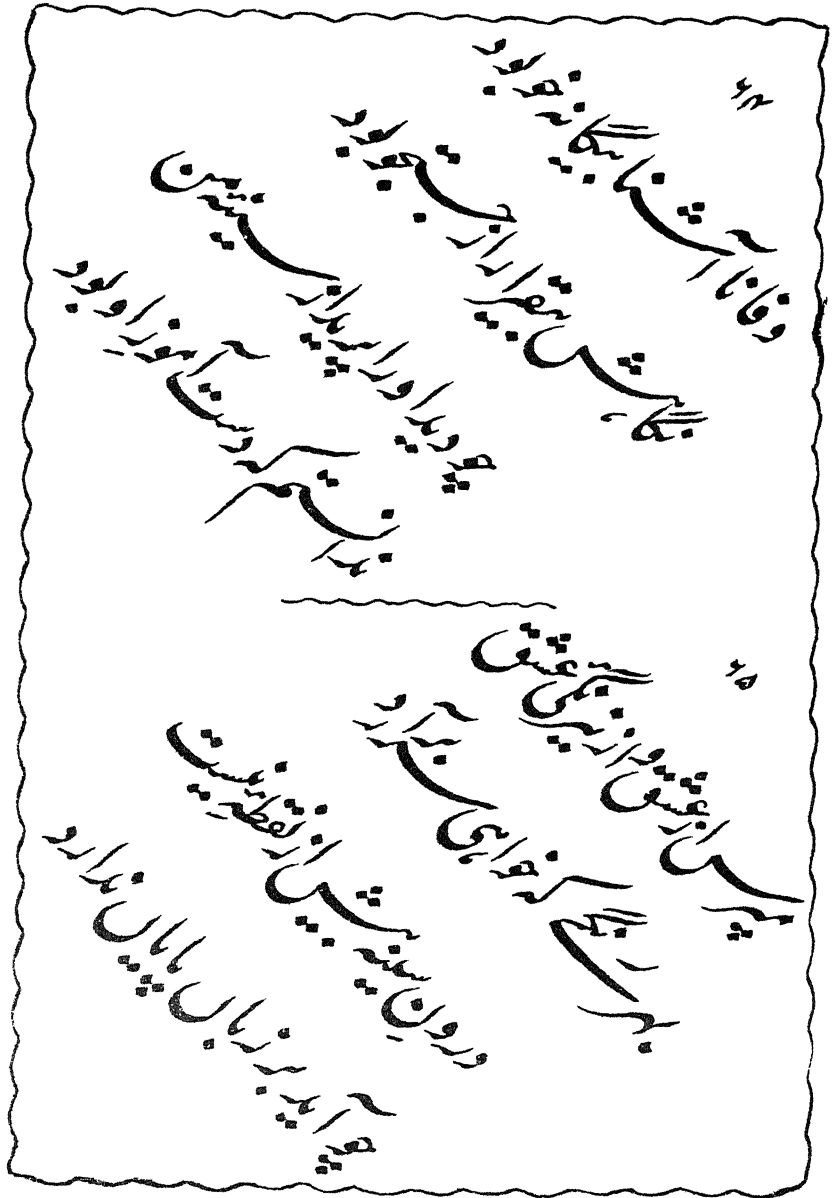 ۶۴
وفا ناآشنا بیگانه خو بود
نگاهش بیقرار از جستجو بود
چو دید او را پرید از سینهٔ من
ندانستم که دست آموز او بود
۶۵
مپرس از عشق و از نیرنگیِ عشق
بهر رنگے که خواهی سر برآرد
درونِ سینه بیش از نقطهٔ نیست
چو آید بر زبان پایان ندارد